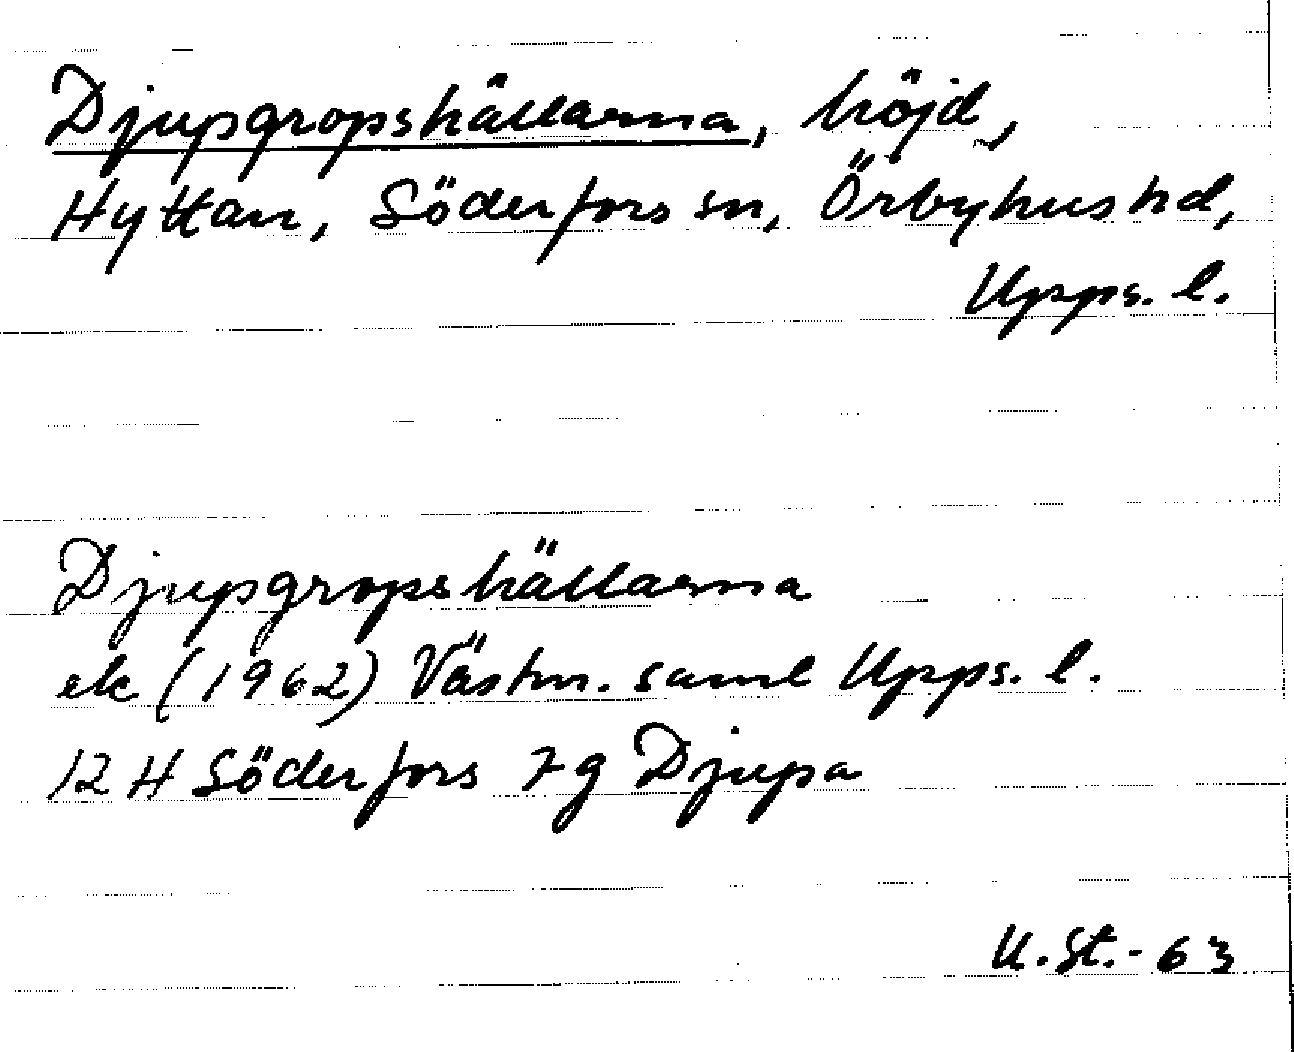 Djupgropshällarna, höjd,
Hyttan, Söderfors sn, Örbyhus hd,
Upps. l.
Djupgropshällarna
ek (1962) Västm. saml Upps. l.
12 H Söderfors 7g Djupa
U. St. - 63